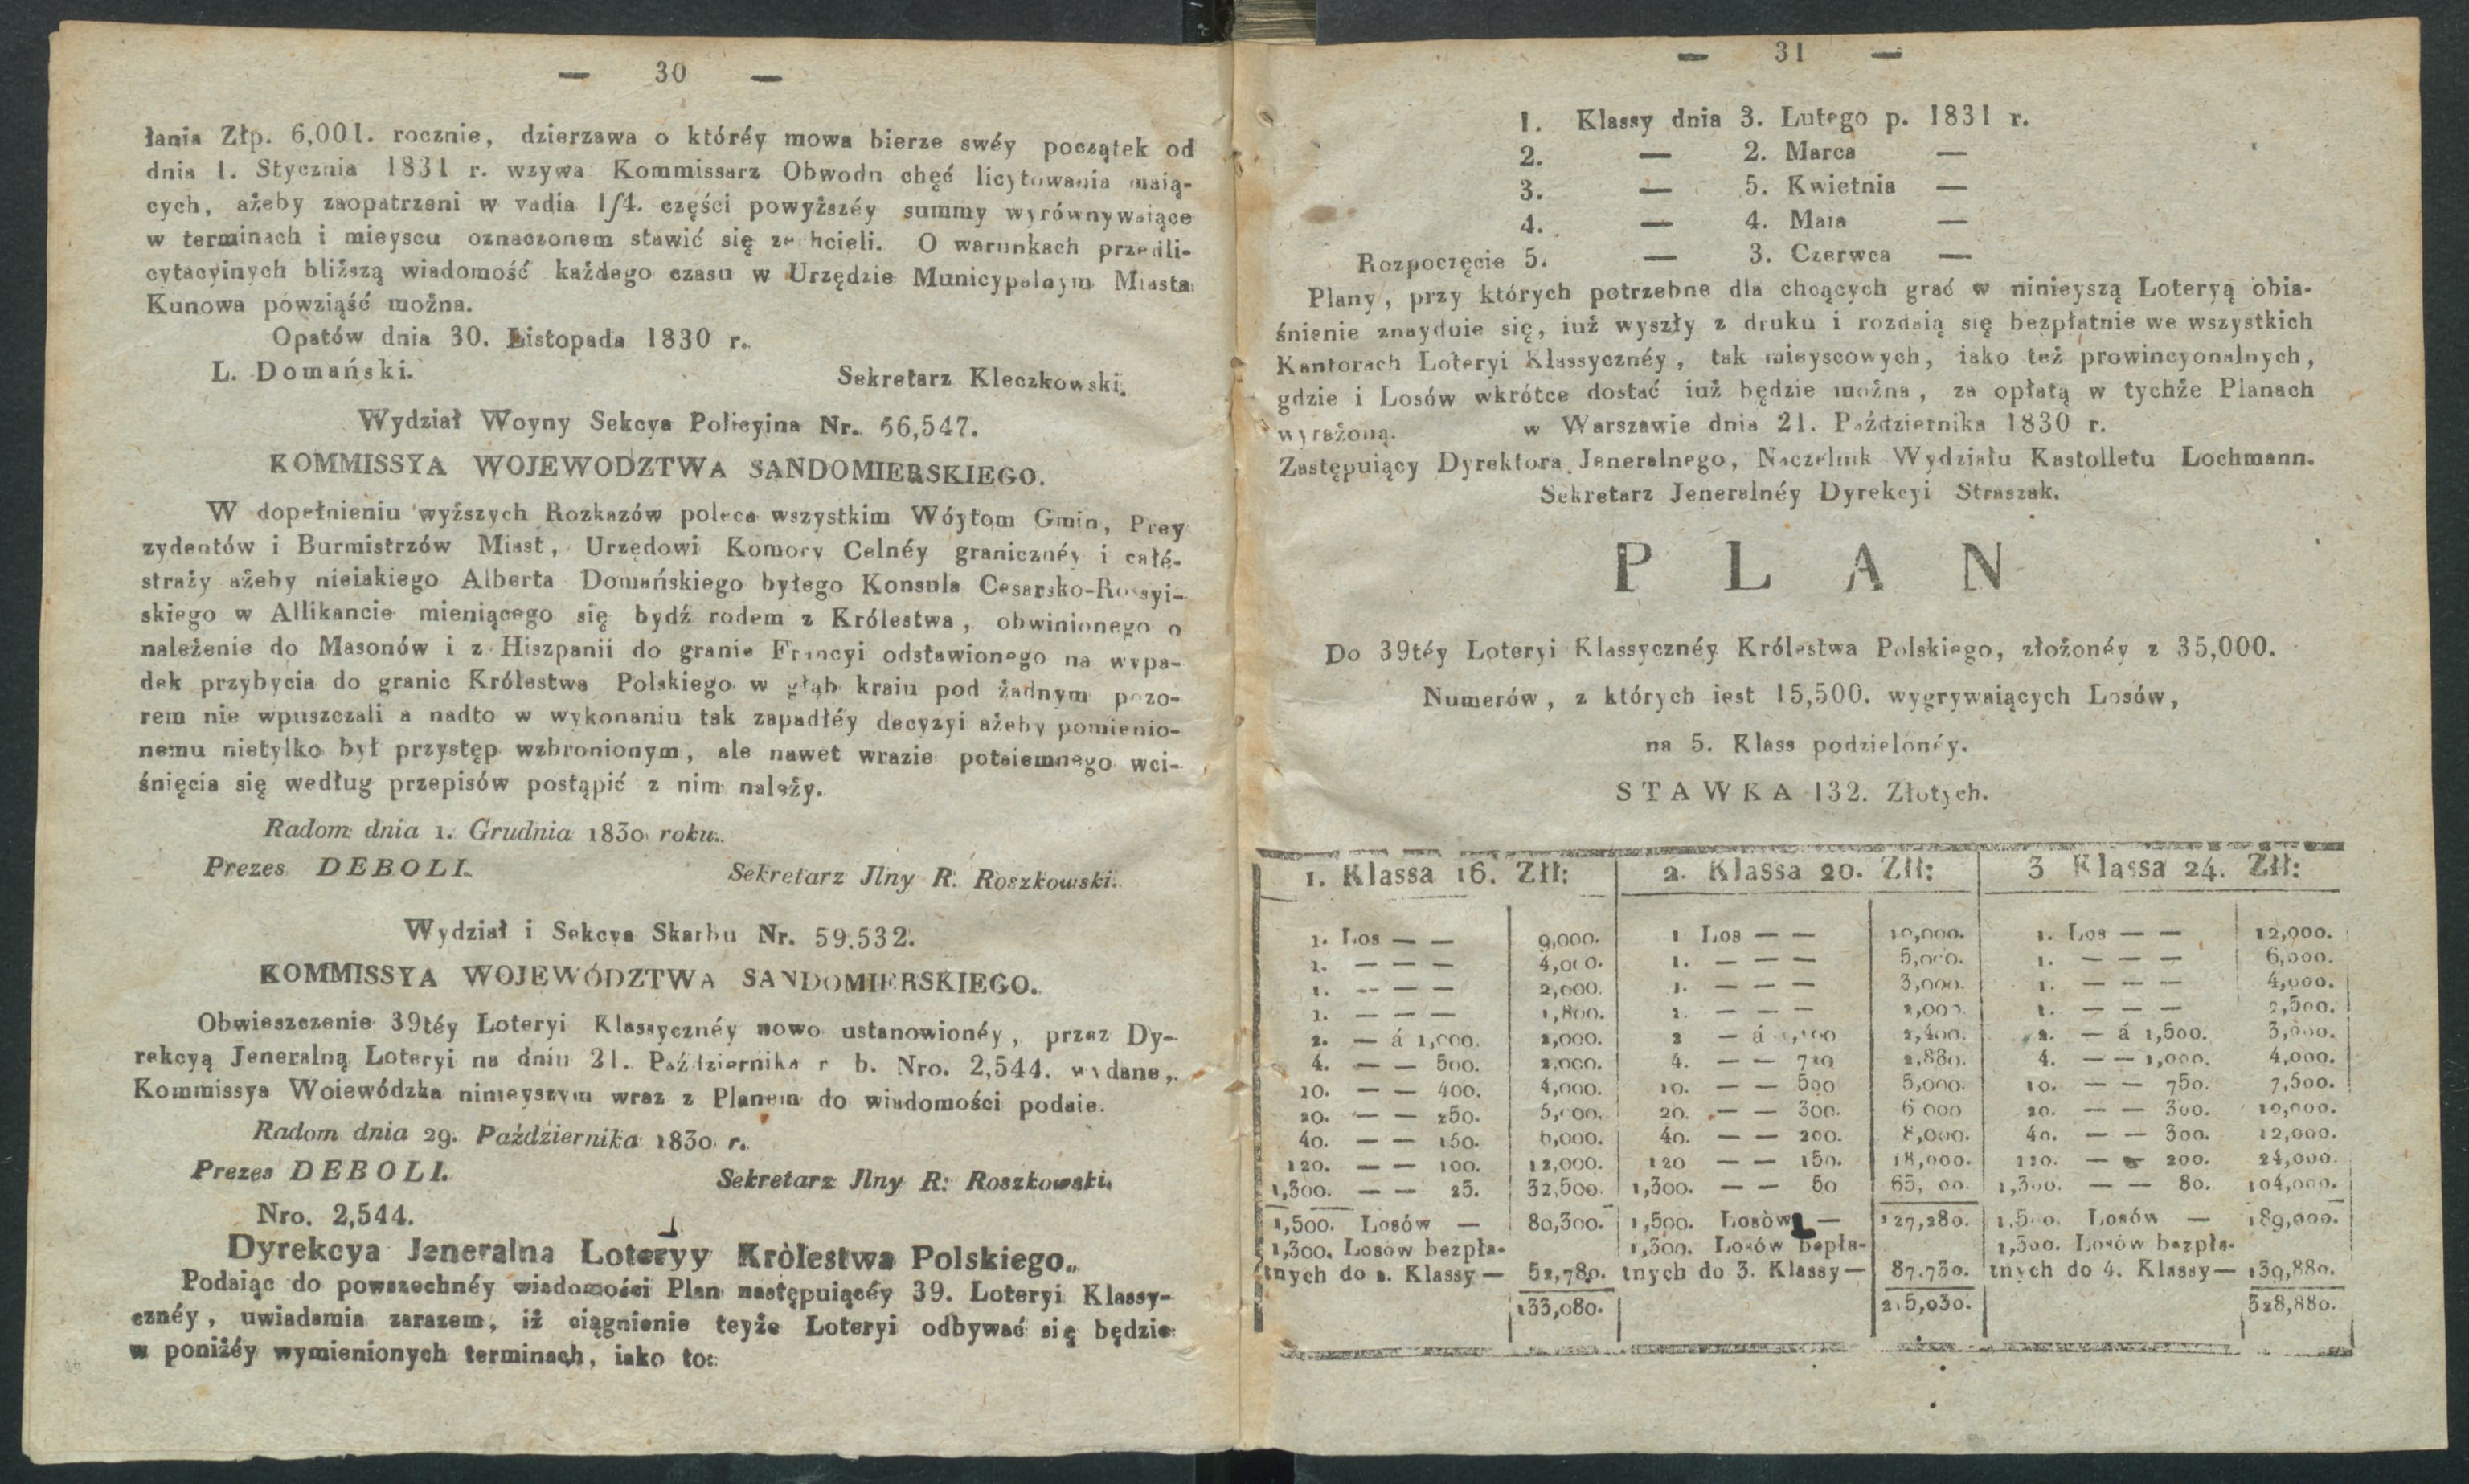 — 30 —
łania Złp. 6,001. rocznie, dzierzawa o któréy mowa bierze swéy początek od
dnia 1. Stycznia 1831 r. wzywa Kommissarz Obwodu chęć licytowania maią-
cych, ażeby zaopatrzeni w vadia 1/4. części powyższéy summy wyrównywaiące
w terminach i mieyscu oznaczonem stawić się zechcieli. O warunkach przedli-
cytacyinych bliższą wiadomość każdego czasu w Urzędzie Municypalnym Miasta
Kunowa powziąść można.
Opatów dnia 30. Listopada 1830 r.
L. Domański.
Sekretarz Kleczkowski.
Wydział Woyny Sekcya Policyina Nr. 56,547.
KOMMISSYA WOJEWODZTWA SANDOMIERSKIEGO.
W dopełnieniu wyższych Rozkazów poleca wszystkim Wóytom Gmin, Prey
zydentów i Burmistrzów Miast, Urzędowi Komory Celnéy granicznéy i całé-
straży ażeby nieiakiego Alberta Domańskiego byłego Konsula Cesarsko-Rossyi-
skiego w Allikancie mieniącego się bydź rodem z Królestwa, obwinionego o
należenie do Masonów i z Hiszpanii do granic Francyi odstawionego na wypa-
dek przybycia do granic Królestwa Polskiego w głąb kraiu pod żadnym pozo-
rem nie wpuszczali a nadto w wykonaniu tak zapadłéy decyzyi ażeby pomienio-
nemu nietylko był przystęp wzbronionym, ale nawet wrazie potaiemnego wci-
śnięcia się według przepisów postąpić z nim należy.
Radom dnia 1. Grudnia 1830 roku.
Prezes DEBOLI.
Sekretarz Jlny R. Roszkowski.
Wydział i Sekcya Skarbu Nr. 59.532.
KOMMISSYA WOJEWÓDZTWA SANDOMIERSKIEGO.
Obwieszczenie 39téy Loteryi Klassycznéy nowo ustanowionéy, przez Dy-
rekcyą Jeneralną Loteryi na dniu 21. Października r b. Nro. 2,544. wydane,
Kommissya Woiewódzka ninieyszym wraz z Planem do wiadomości podaie.
Radom dnia 29. Października 1830 r.
Prezes DEBOLI.
Sekretarz Jlny R: Roszkowski.
Nro. 2,544.
Dyrekcya Jeneralna Loteryy Królestwa Polskiego.
Podaiąc do powszechnéy wiadomości Plan następuiącéy 39. Loteryi Klassy-
cznéy, uwiadamia zarazem, iż ciągnienie teyże Loteryi odbywać się będzie
w poniżéy wymienionych terminach, iako to:
— 31 —
1. Klassy dnia 3. Lutego p. 1831 r.
2. — 2. Marca —
3. — 5. Kwietnia —
4. — 4. Maia —
Rozpoczęcie 5. — 3. Czerwca —
Plany, przy których potrzebne dla chcących grać w ninieyszą Loteryą obia-
śnienie znayduie się, iuż wyszły z druku i rozdaią się bezpłatnie we wszystkich
Kantorach Loteryi Klassycznéy, tak mieyscowych, iako też prowincyonalnych,
gdzie i Losów wkrótce dostać iuż będzie można, za opłatą w tychże Planach
wyrażoną. w Warszawie dnia 21. Października 1830 r.
Zastępuiący Dyrektora Jeneralnego, Naczelnik Wydziału Kastolletu Lochmann.
Sekretarz Jeneralnéy Dyrekcyi Straszak.
PLAN
Do 39téy Loteryi Klassycznéy Królestwa Polskiego, złożonéy z 35,000.
Numerów, z których iest 15,500. wygrywaiących Losów,
na 5. Klass podzielonéy.
STAWKA 132. Złotych.
1. Klassa 16. Złł: 2. Klassa 20. Złł: 3 Klassa 24. Złł:
1. Los — — 9,000. 1 Los — — 10,000. 1. Los — — 12,000.
1. — — — 4,000. 1. — — — 5,000. 1. — — — 6,000.
1. — — — 2,000. 1. — — — 3,000. 1. — — — 4,000.
1. — — — 1,800. 1. — — — 2,000. 1. — — — 2,500.
2. — á 1,000. 2,000. 2 — á 2,400. 2. — á 1,500. 3,000.
4. — — 500. 2,000. 4. — — 720 2,880. 4. — — 1,000. 4,000.
10. — — 400. 4,000. 10. — — 500 5,000. 10. — — 750. 7,500.
20. — — 250. 5,000. 20. — — 300. 6 000 20. — — 10,000.
40. — — 150. 6,000. 40. — — 200. 8,000. 40. — — 300. 12,000.
120. — — 100. 12,000. 120 — — 150. 18,000. 120. — — 200. 24,000.
1,300. — — 25. 32,500. 1,300. — — 50 65, 00. 1,300. — — 80. 104,000.
1,500. Losów — 80,300. 1,500. Losów — 127,280. 1,500. Losów — 189,000.
1,300. Losów bezpła- 1,300. Losów bepła- 1,300. Losów bezpła-
tnych do 2. Klassy — 52,780. tnych do 3. Klassy — 87.750. tnych do 4. Klassy — 139,880.
133,080. 215,030. 328,880.